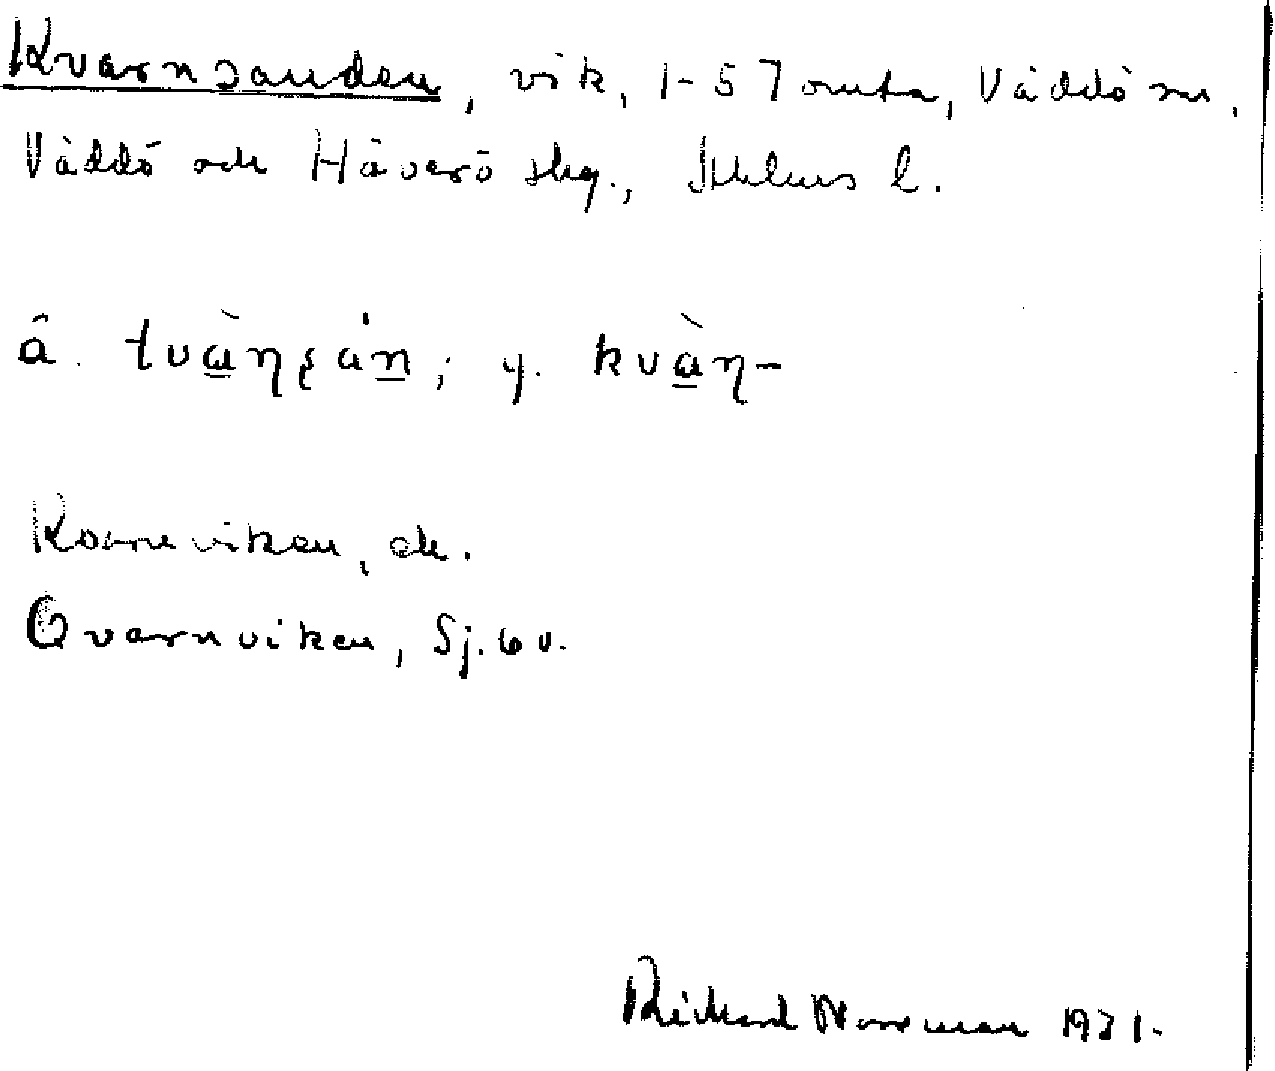 Kvarnsanden, vik, 1-57 omta, Väddö sn,
Väddö och Häverö skg., Sthlms l.
ä. tvàṉṣán; y. kvàn-
Kvarnviken, ek.
Qvarnviken, Sj. 60.
Rickard Norrman 1931.